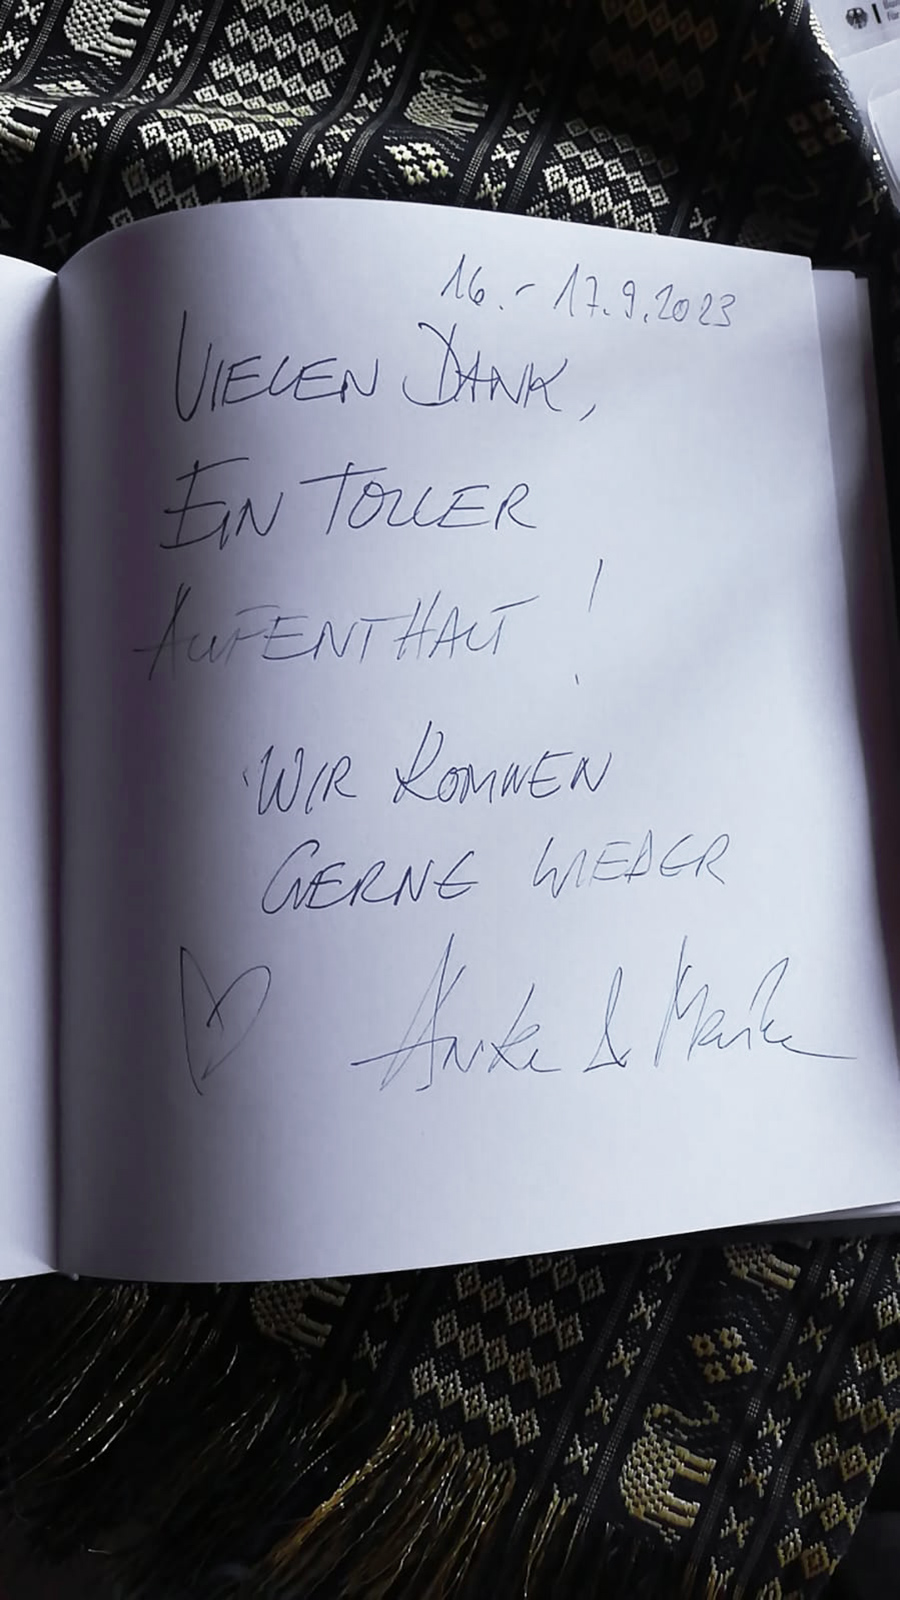 16.- 17.9.2023
VIELEN DANK,
EIN TOLLER
AUFENTHALT !
WIR KOMMEN
GERNE WIEDER
Anke & Maik